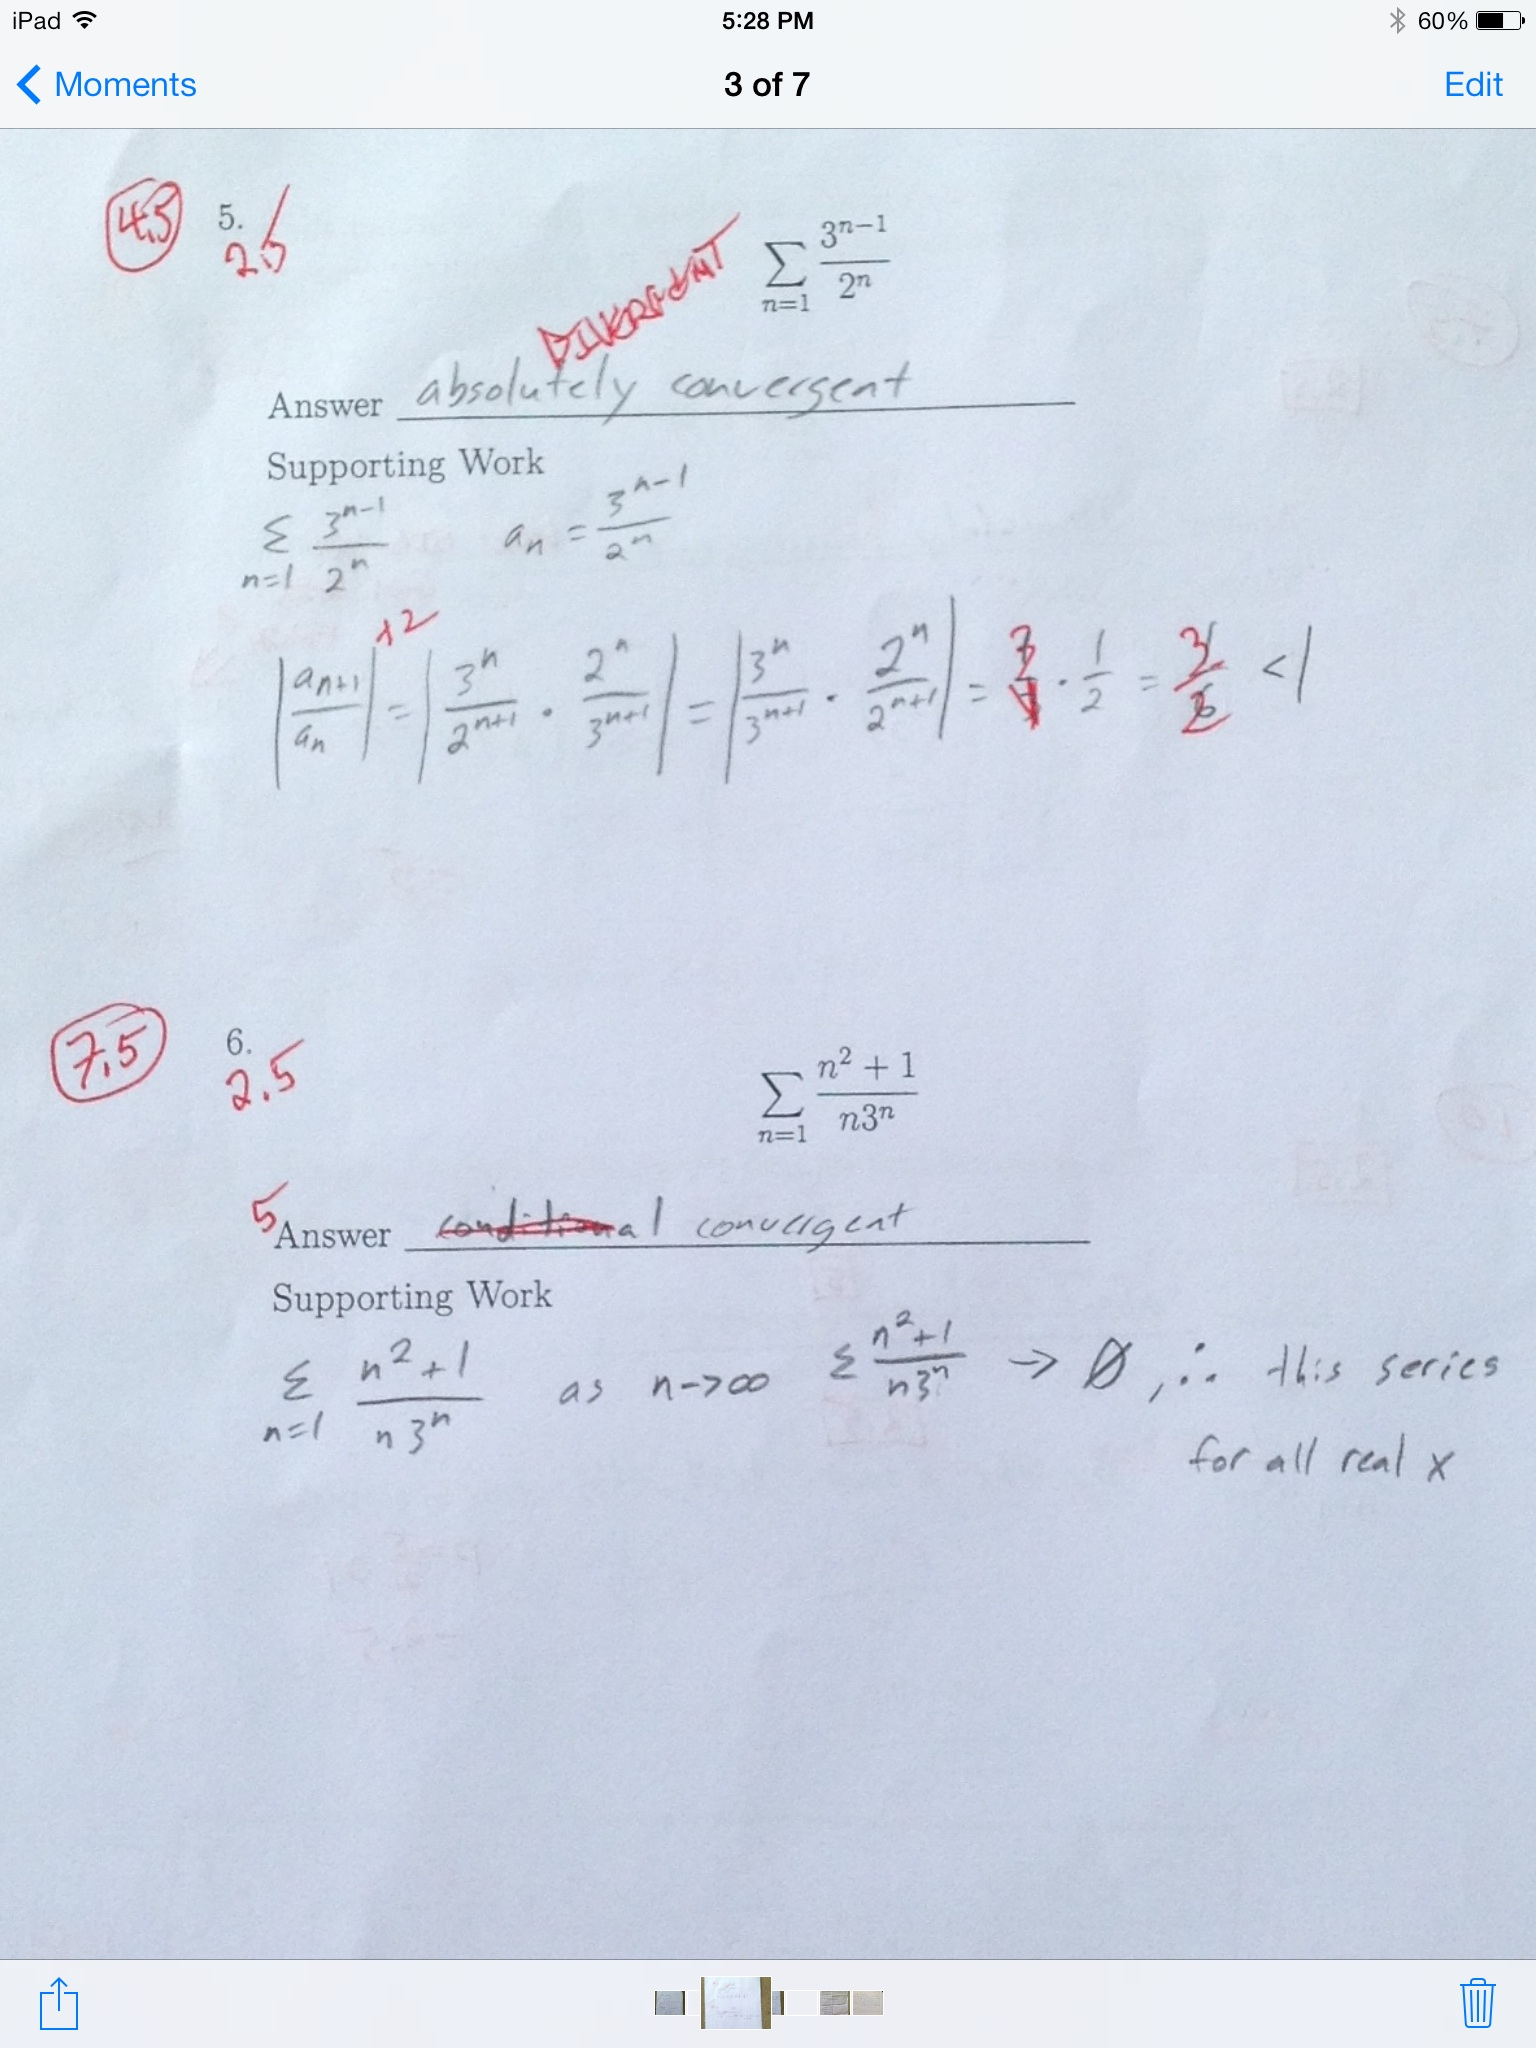 iPad 5:28 PM 60%
Moments 3 of 7 Edit
4.5 5. 2.5
DIVERGENT
∑ n=1 3^{n-1}/2^n
Answer absolutely convergent
Supporting Work
Σ n=1 3^{n-1}/2^n a_n = 3^{n-1}/2^n
+2
|a_{n+1}/a_n| = |3^n/2^{n+1} · 2^n/3^{n+1}| = |3^n/3^{n+1} · 2^n/2^{n+1}| = 3/1 · 1/2 = 3/2 < 1
7.5 6. 2.5
∑ n=1 n^2 + 1/n3^n
5 Answer conditional convergent
Supporting Work
Σ n=1 n^2+1/n3^n as n->∞ Σ n^2+1/n3^n -> 0, ∴ this series
for all real x